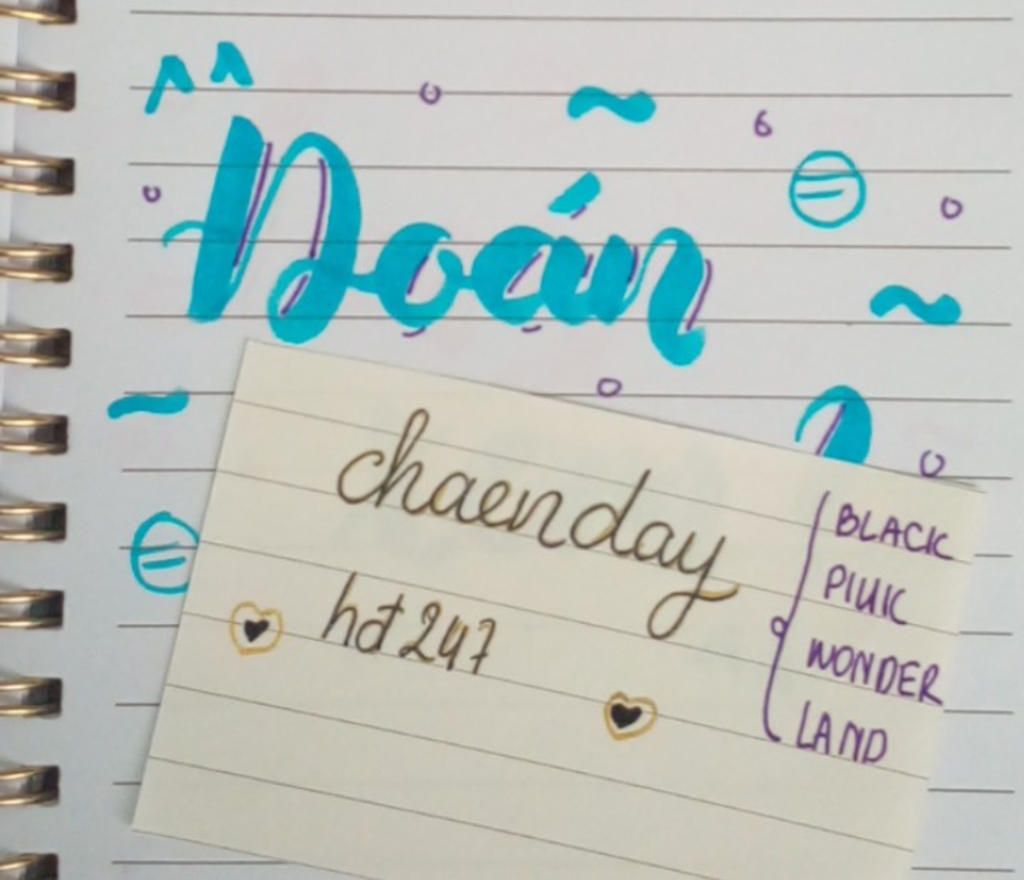 Đoán
?
chaenday
hđ 247
BLACK
PINK
WONDER
LAND